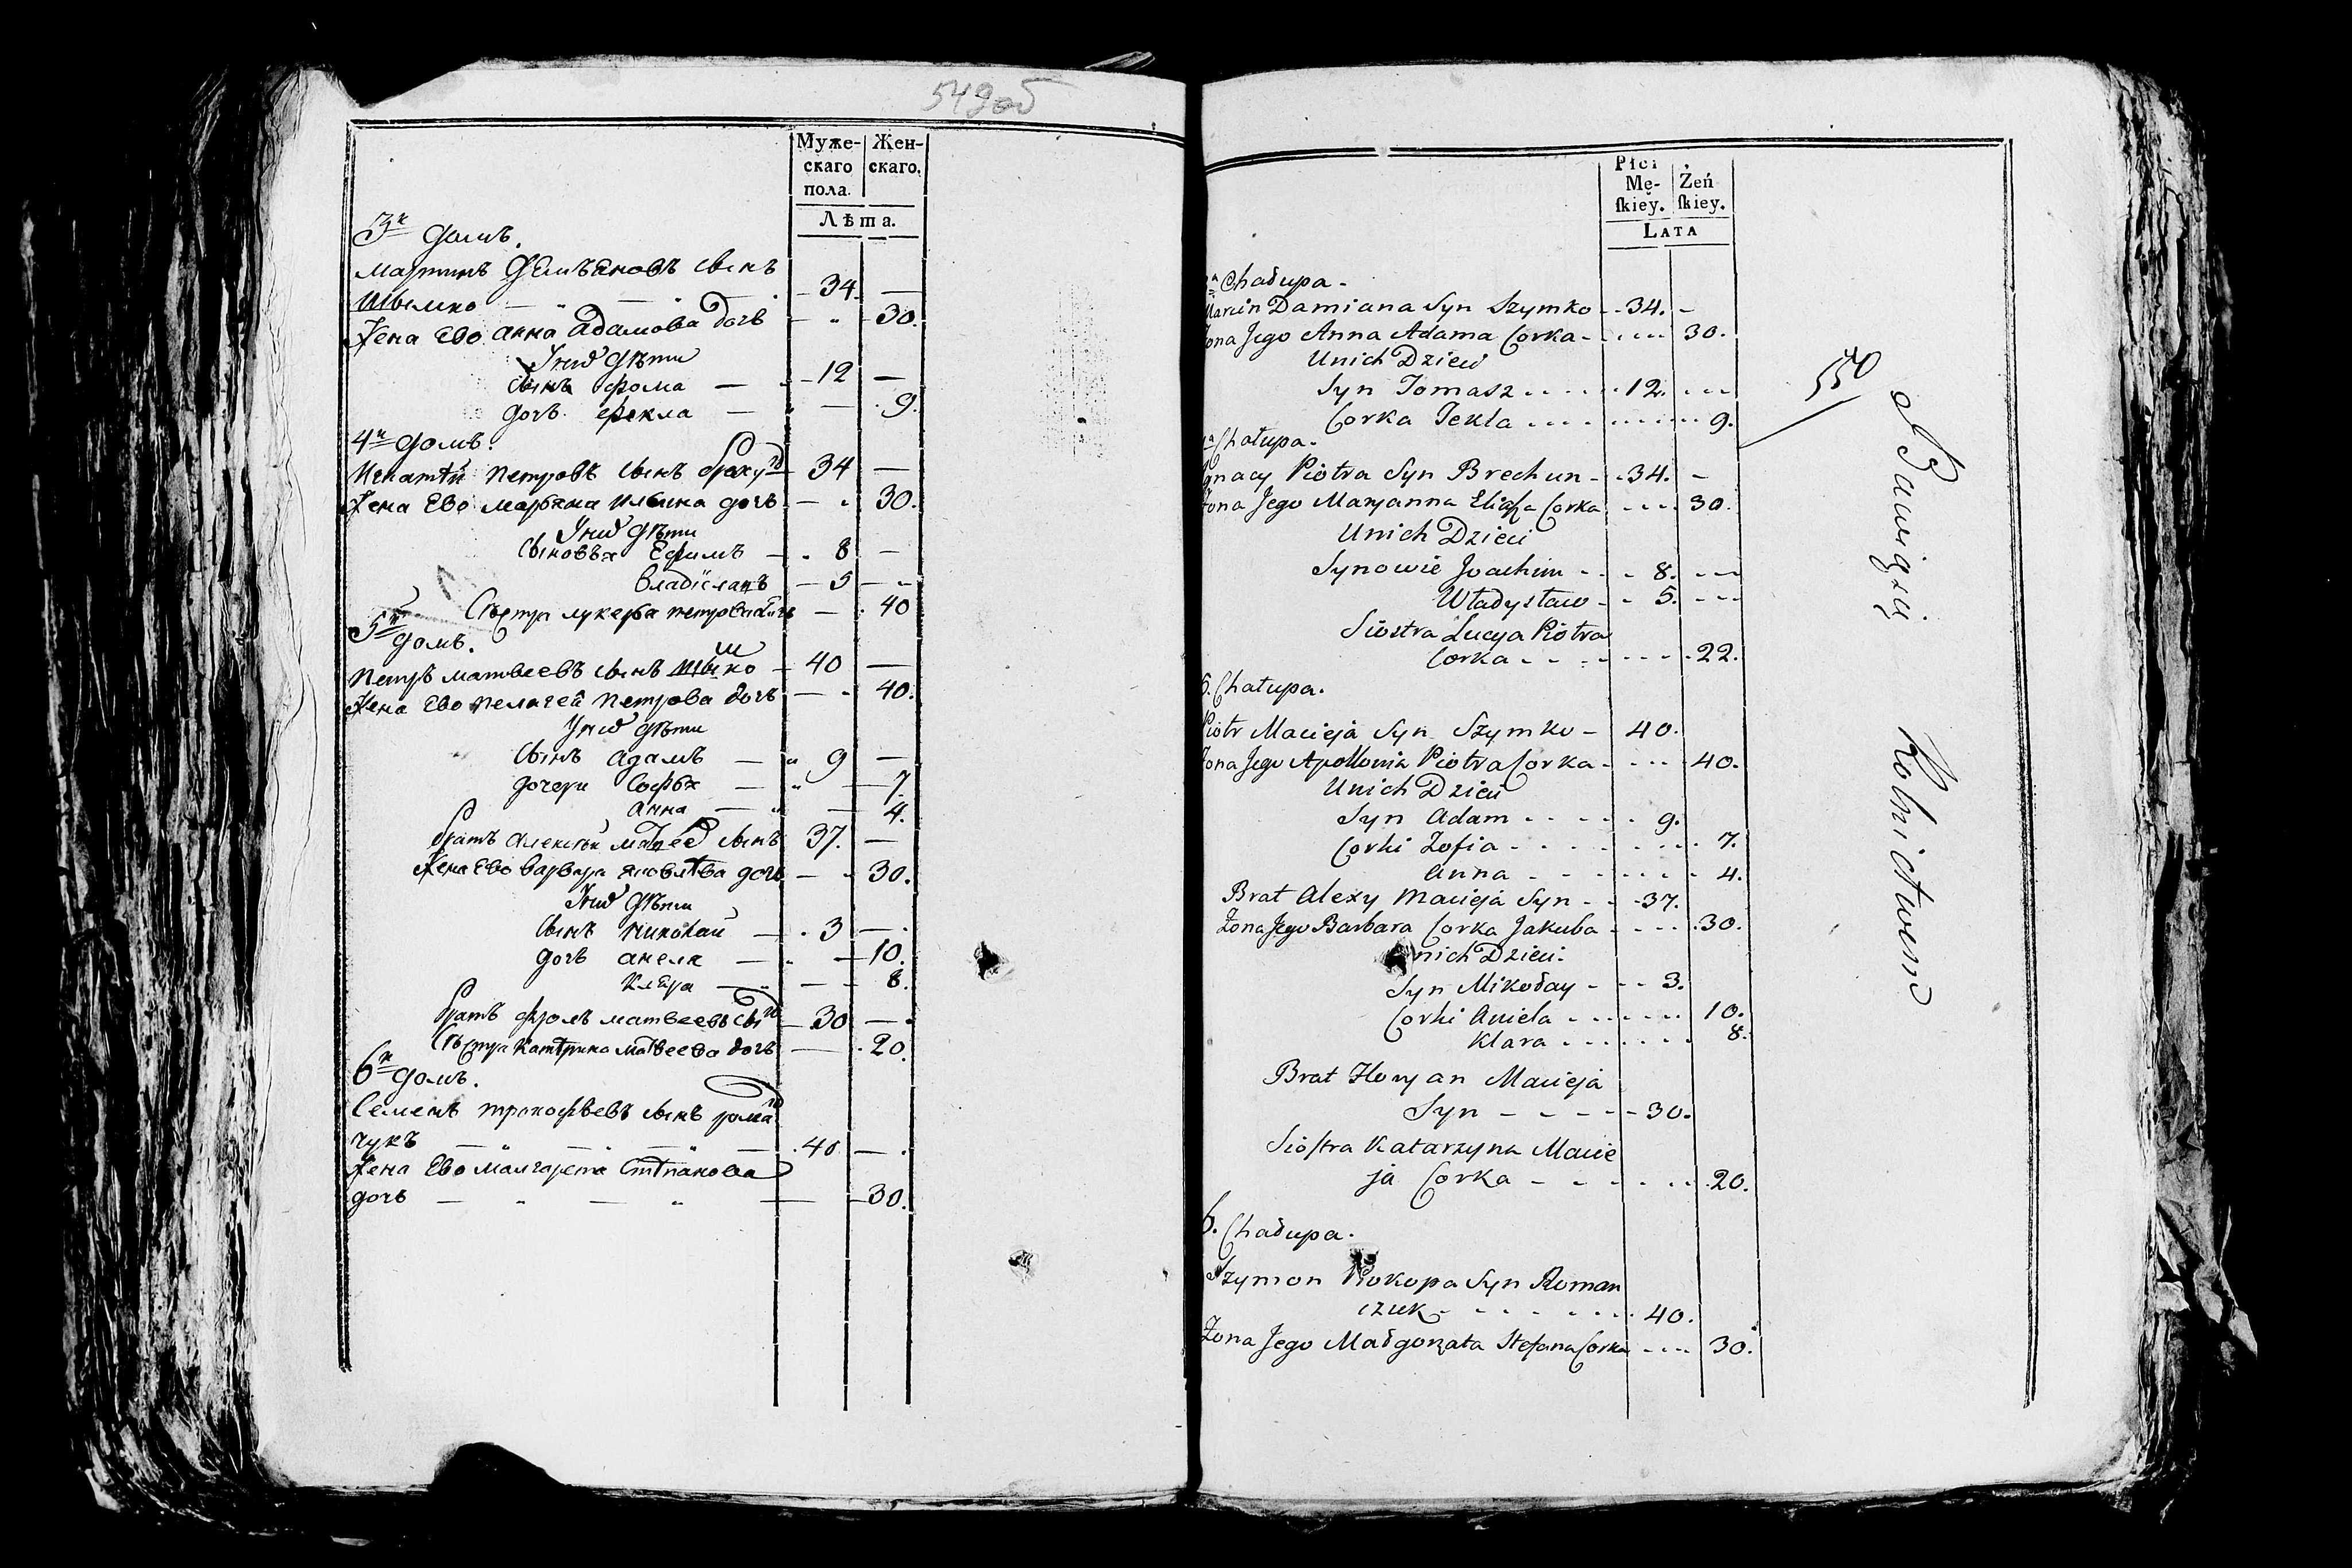 549об
Муже- Жен-
скаго скаго.
пола.
Лѣта.
3й домъ.
Мартинъ Демъеновъ сынъ
Шымко — " — " — 34 —
Жена Ево анна адамова дочь — " 30.
У нихъ дѣти
сынъ фома — 12 —
дочь фекла — " — 9.
4й домъ.
Игнатей петровъ сынъ брехунъ 34 —
Жена Ево марьяна ильина дочь — " 30.
У нихъ дѣти
сыновья Ефимъ — 8 —
владиславъ — 5 — "
Сестра лукерья петрова дочь — 40
5й
домъ.
петръ матвеевъ сынъ Шымко — 40 —
Жена Ево пелагея петрова дочь — " 40.
У нихъ дѣти
сынъ адамъ — " 9 —
дочери софья — " — 7.
анна — " — 4.
братъ алексѣй матвеевъ сынъ 37. —
Жена Ево варвара яковлева дочь — " 30.
У нихъ дѣти
сынъ николай — " 3 — "
дочь анеля — " — 10.
клара — " — 8.
братъ фролъ матвеевъ сынъ — 30 — "
Сестра катерина матвеева дочь — 20.
6й домъ.
Семенъ прокофьевъ сынъ роман
чукъ — " — " — 40 — "
Жена Ево малгарета степанова
дочь — " — " — 30.
Płci
Mę- Żeń
ſkiey. ſkiey.
LATA
Chałupa.
Marcin Damiana Syn Szymko - - 34. -
Żona Jego Anna Adama Corka - - - - 30.
Unich Dzieci
Syn Tomasz - - - - 12. - - -
Corka Tekla - - - - - - - - 9.
Chałupa.
Ignacy Piotra Syn Brechun - - 34. -
Żona Jego Maryanna Eliaſza Corka - - - 30.
Unich Dzieci
Synowie Joachim - - - 8. - - -
Władysław - - 5. - - -
Siostra Lucya Piotra
Corka - - - - - - - 22.
5. Chałupa.
Piotr Macieja Syn Szymko - 40.
Żona Jego Apollonia Piotra Corka - - - - 40.
Unich Dzieci
Syn Adam - - - - - 9.
Corki Zofia - - - - - - - - 7.
Anna - - - - - - - 4.
Brat Alexy Macieja Syn - - - 37.
Żona Jego Barbara Corka Jakuba - - - - 30.
Unich Dzieci.
Syn Mikołay - - - 3.
Corki Aniela - - - - - - 10.
Klara - - - - - - - 8.
Brat Floryan Macieja
Syn - - - - - - 30.
Sioſtra Katarzyna Macie
ja Corka - - - - - - 20.
6. Chałupa.
Szymon Prokopa Syn Roman
czuk - - - - - - - 40.
Żona Jego Małgorzata Stefana Corka - - - - 30.
550
Bawiący Rolnictwem